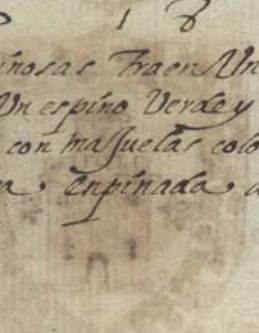 1 8
inosas Traen Un
Un espino Verde y
con majuelas colo
a, enpinada, a